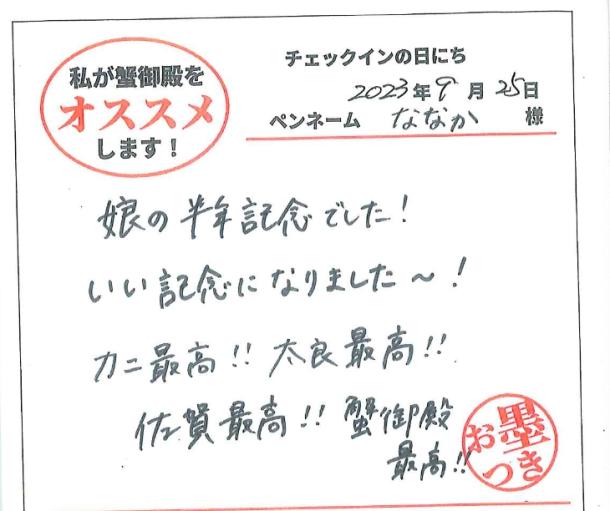 私が蟹御殿を
オススメ
します！
チェックインの日にち
2023年9月25日
ペンネーム ななか 様
娘の半年記念でした！
いい記念になりました〜！
カニ最高!! 太良最高!!
佐賀最高!! 蟹御殿
最高!!
お墨
つき